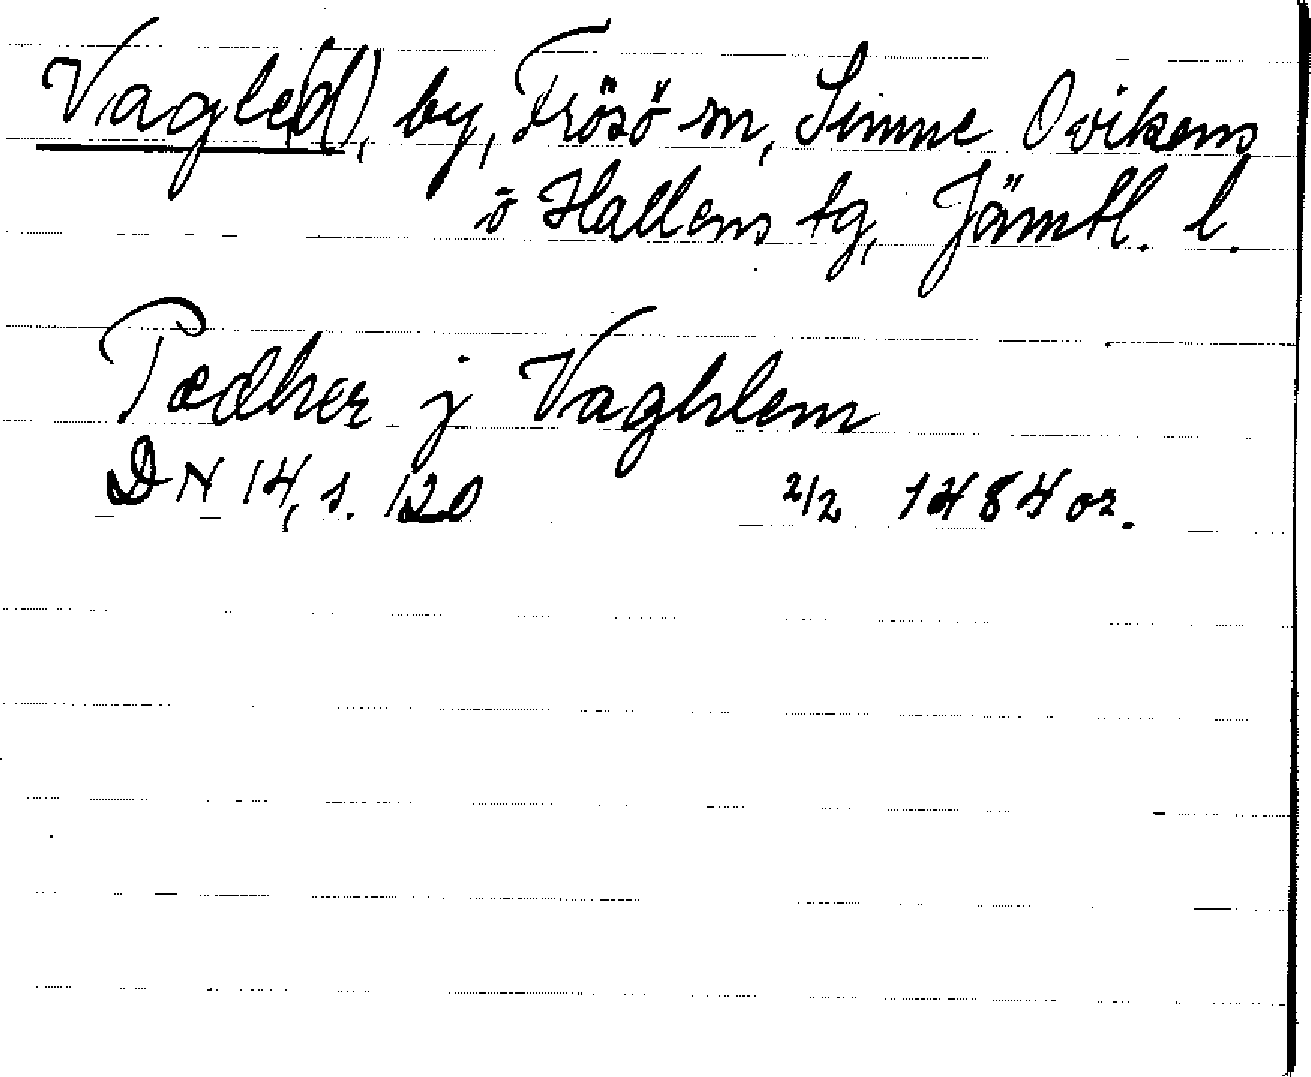 Vagle(d), by, Frösö sn, Sunne Ovikens
o Hallens tg, Jämtl. l.
Pædher j Vaghlem
DN 14, s. 120 2/2 1484 or.